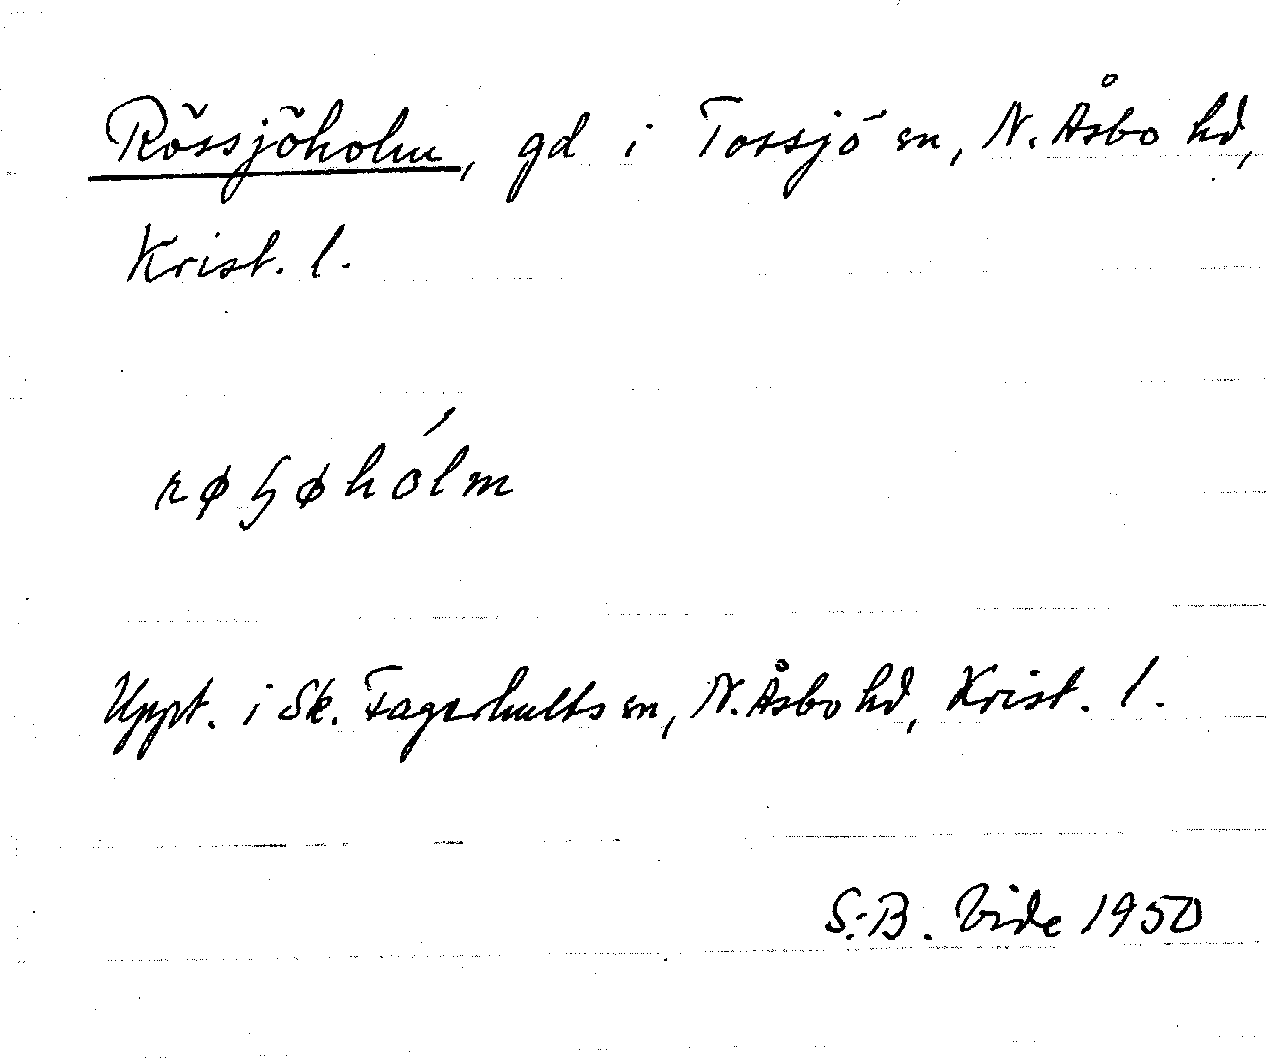 Rössjöholm, gd i Tossjö sn, N. Åsbo hd,
Krist. l.
røɧøhólm
Uppt. i Sk. Fagerhults sn, N. Åsbo hd, Krist. l.
S.-B. Vide 1950